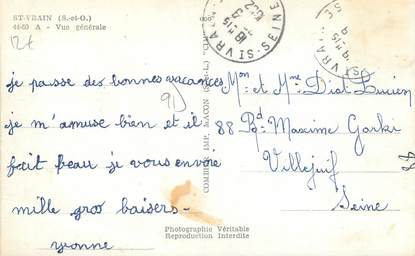 ST-VRAIN (S.-et-O.)
44-50 A - Vue générale
12f
je passe des bonnes vacances
91
je m'amuse bien et il
fait beau je vous envoie
mille gros baisers-
yvonne
COMBIER IMP. MACON
Mon et Mme Diot Lucien
88 Bd Maxime Gorki
Villejuif
Seine
Photographie Véritable
Reproduction Interdite